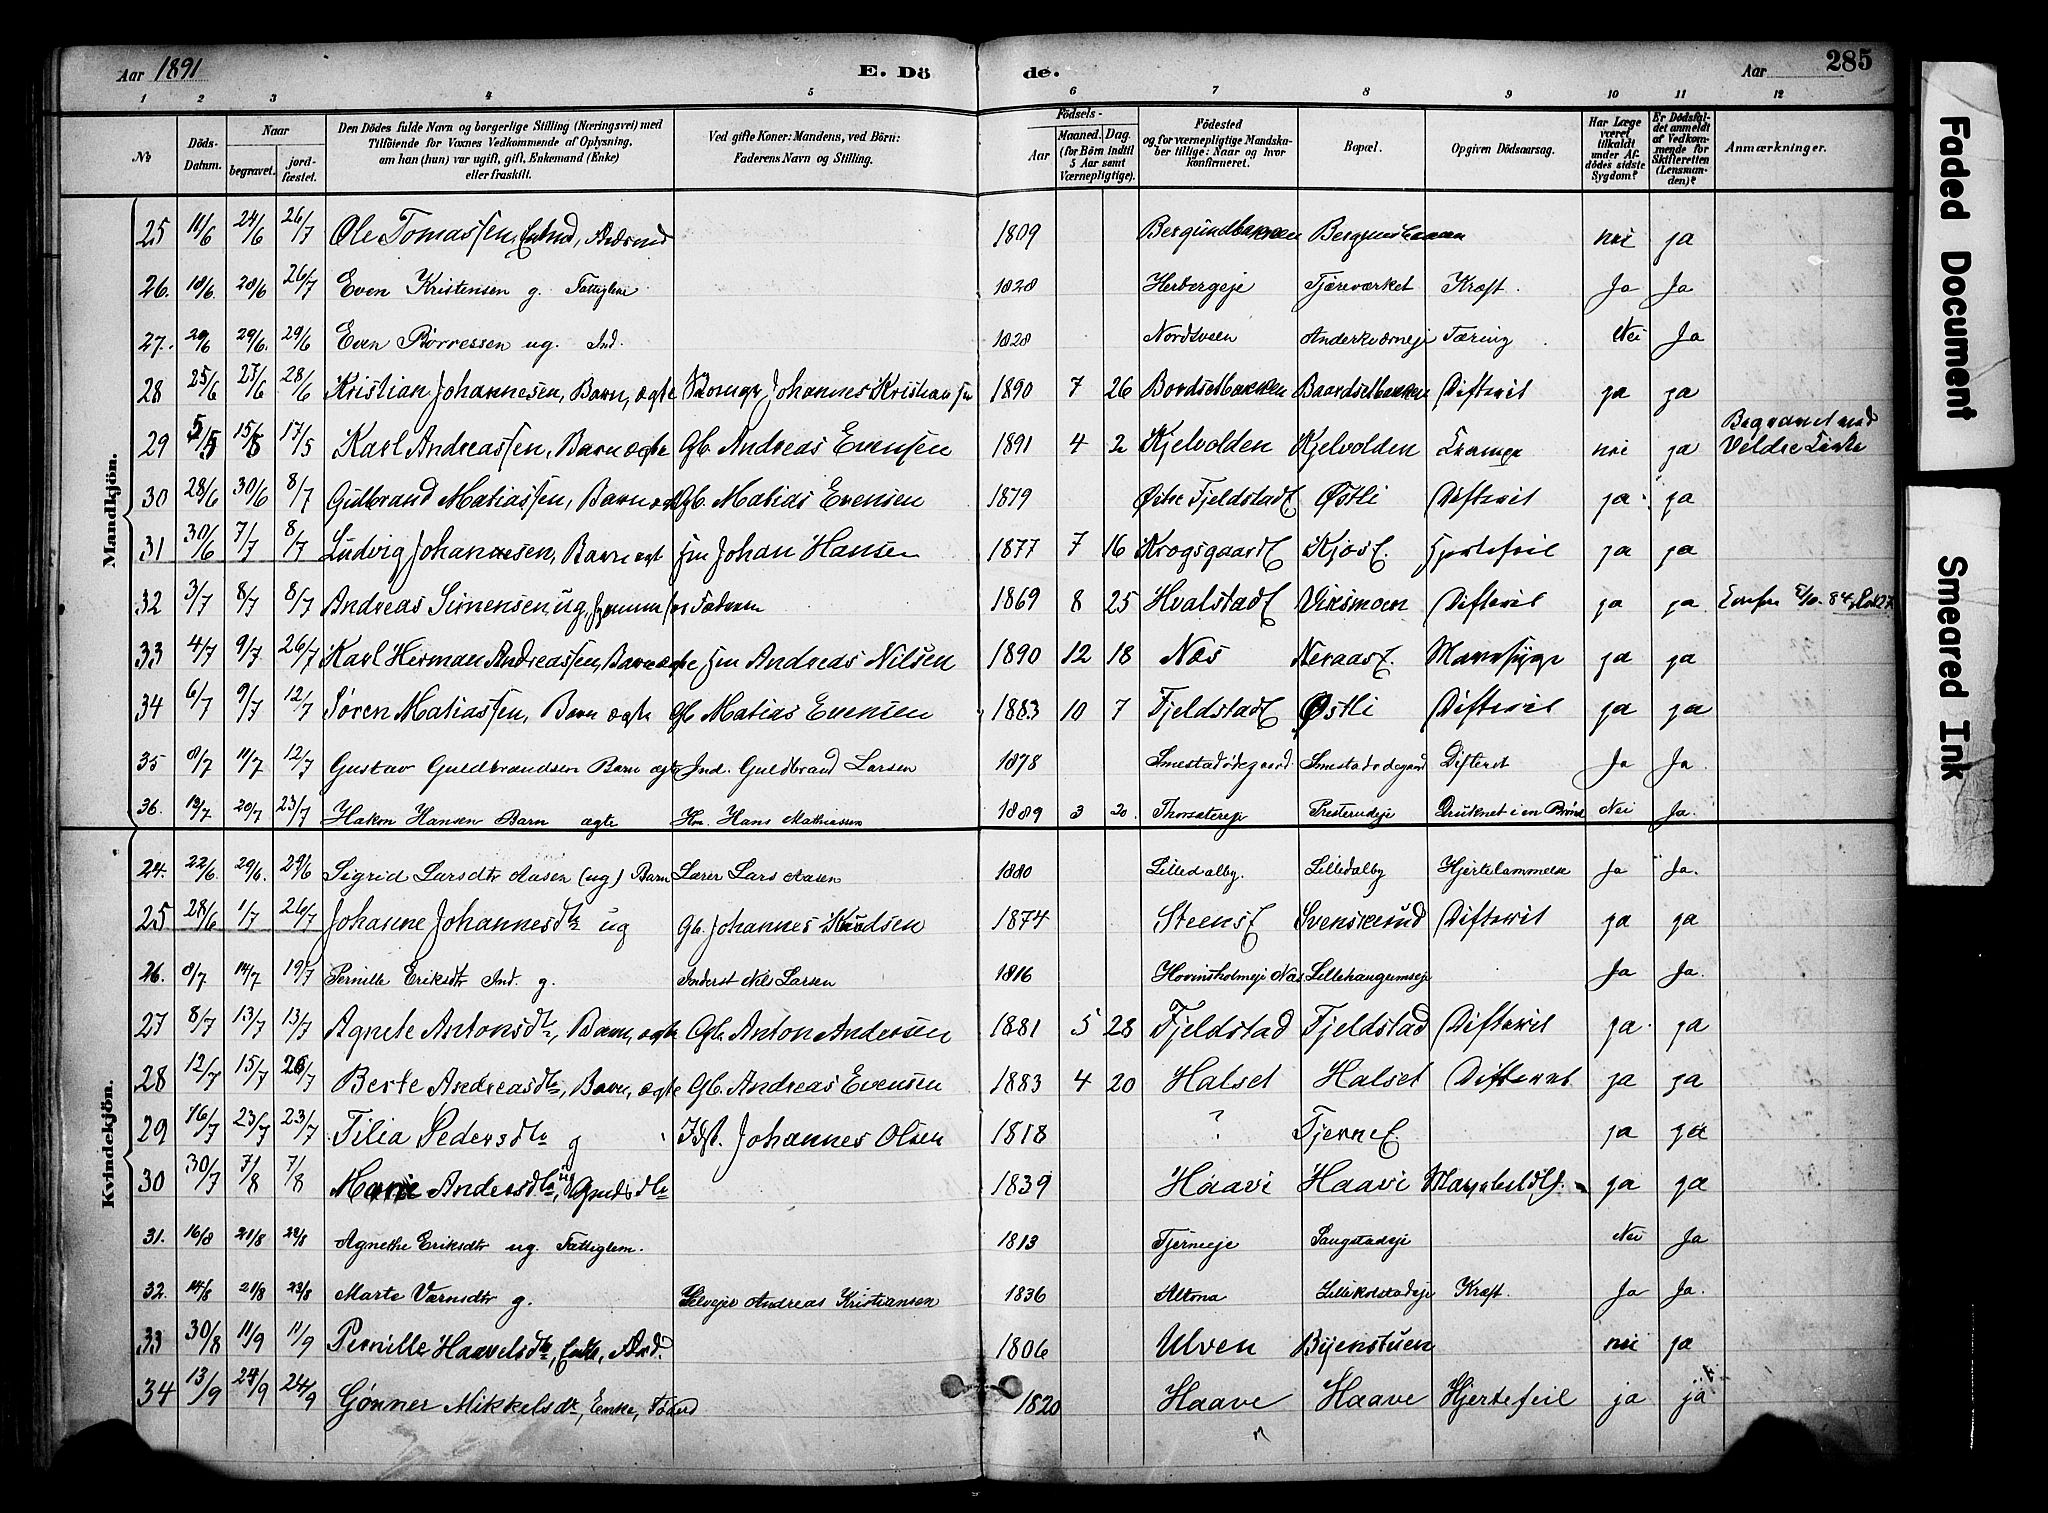 Aar 1891
E. Dö
de.
Aar
285
1 2 3 4 5 6 7 8 9 10 11 12
No
Döds-Datum.
Naar
begravet.
jord-fæstet.
Den Dödes fulde Navn og borgerlige Stilling (Næringsvei) med
Tilföiende for Voxnes Vedkommende af Oplysning,
om han (hun) var ugift, gift, Enkemand (Enke)
eller fraskilt.
Ved gifte Koner: Mandens, ved Börn:
Faderens Navn og Stilling.
Födsels-
Aar
Maaned. Dag.
(for Börn indtil
5 Aar samt
Værnepligtige).
Födested
og for værnepligtige Mandska-
ber tillige: Naar og hvor
konfirmeret.
Bopæl.
Opgiven Dödsaarsag.
Har Læge
været
tilkaldt
under Af-
dödes sidste
Sygdom?
Er Dödsfal-
det anmeldt
af Vedkom-
mende for
Skifteretten
(Lensman-
den)?
Anmærkninger.
Mandkjön.
25 11/6 24/6 26/7 Ole Tomassen, 1809 nei ja
26. 18/6. 20/6 26/7 Even Kristensen g. Fattiglem 1828 Herbergeje Tjæreværket Kræft. Ja Ja
27. 20/6 29/6. 29/6 Even Børresen ug. Ind. 1828 Nordsveen Anderkværneje Tæring Nei Ja
28 25/6 27/6 28/6 Kristian Johannesen, Barn, ægte Johannes Kristiansen 1890 7 26 Bordsetbakken Baardsetbakken Difterit ja ja
29 5/5 15/5 17/5 Karl Andreassen, Barn ægte Gb. Andreas Evensen 1891 4 2 Kjelvolden Kjelvolden Krampe nei ja Begravet ved Veldre Kirke
30 28/6 30/6 8/7 Gulbrand Matiassen, Barn ægte Gb. Matias Evensen 1879 Østre Fjeldstad Østli Difterit ja ja
31 30/6 7/7 8/7 Ludvig Johannesen, Barn ægte Johan Hansen 1877 7 16 Krogsgaard Hjertefeil ja ja
32 3/7 8/7 8/7 Andreas Simensen, ug, hjemme hos Faderen 1869 8 25 Hvalstad Difterit ja ja
33 4/7 9/7 26/7 Karl Herman Andreassen, Barn ægte Andreas Nilsen 1890 12 18 Næs Mavesyge ja ja
34 6/7 9/7 12/7 Søren Matiassen, Barn ægte Gb Matias Evensen 1883 10 7 Fjeldstad Østli Difterit ja ja
35 8/7 11/7 12/7 Gustav Guldbrandsen Barn ægte Ind. Guldbrand Larsen 1878 Smestadødegaard Smestadødegaard Difterit Ja Ja.
36. 13/7 20/7 23/7 Hakon Hansen Barn ægte Hans Mathiassen 1889 3 20. Presterudeje Druknet i en Brønd Nei Ja.
Kvindekjön.
24. 22/6 29/6. 29/6 Sigrid Larsdtr Aasen (ug) Barn Lærer Lars Aasen 1880 Lilledalby. Lilledalby Hjertelammelse Ja Ja.
25 28/6 1/7 26/7 Johanne Johannesdtr ug Gb. Johannes Knudsen 1874 Svenskerud Difterit ja ja
26. 8/7 14/7 19/7 Pernille Eriksdtr Ind. g. Inderst Nils Larsen 1816 Hovinsholmeje Næs Lillehaugumseje Ja Ja.
27 8/7 13/7 13/7 Agnete Antonsdtr, Barn, ægte Gb. Anton Andersen 1881 5 28 Fjeldstad Fjeldstad Difterit ja ja
28 12/7 15/7 26/7 Berte Andreasdtr, Barn, ægte Gb. Andreas Evensen 1883 4 20 Halset Halset Difterit ja ja
29 16/7 23/7 23/7 Tilia Pedersdtr g Idst. Johannes Olsen 1818 ? Tjerne ja ja
30 30/7 7/8 7/8 Marie Andersdtr, ug 1839 Haavi Haavi ja ja
31. 16/8 21/8 22/8 Agnethe Eriksdtr ug. Fattiglem. 1813 Tjerneeje Nei Ja
32. 14/8 21/8 23/8 Marte g. Selvejer Andreas Kristiansen 1836 Altona Kræft. Ja Ja.
33 30/8 11/9 11/9 Pernille Haavelsdtr, Enke, 1806 Ulven Byenstuen nei ja
34 13/9 24/9 24/9 Gønner Mikkelsdtr, Enke, 1820 Haave Haave Hjertefeil ja ja
Faded Document
Smeared Ink